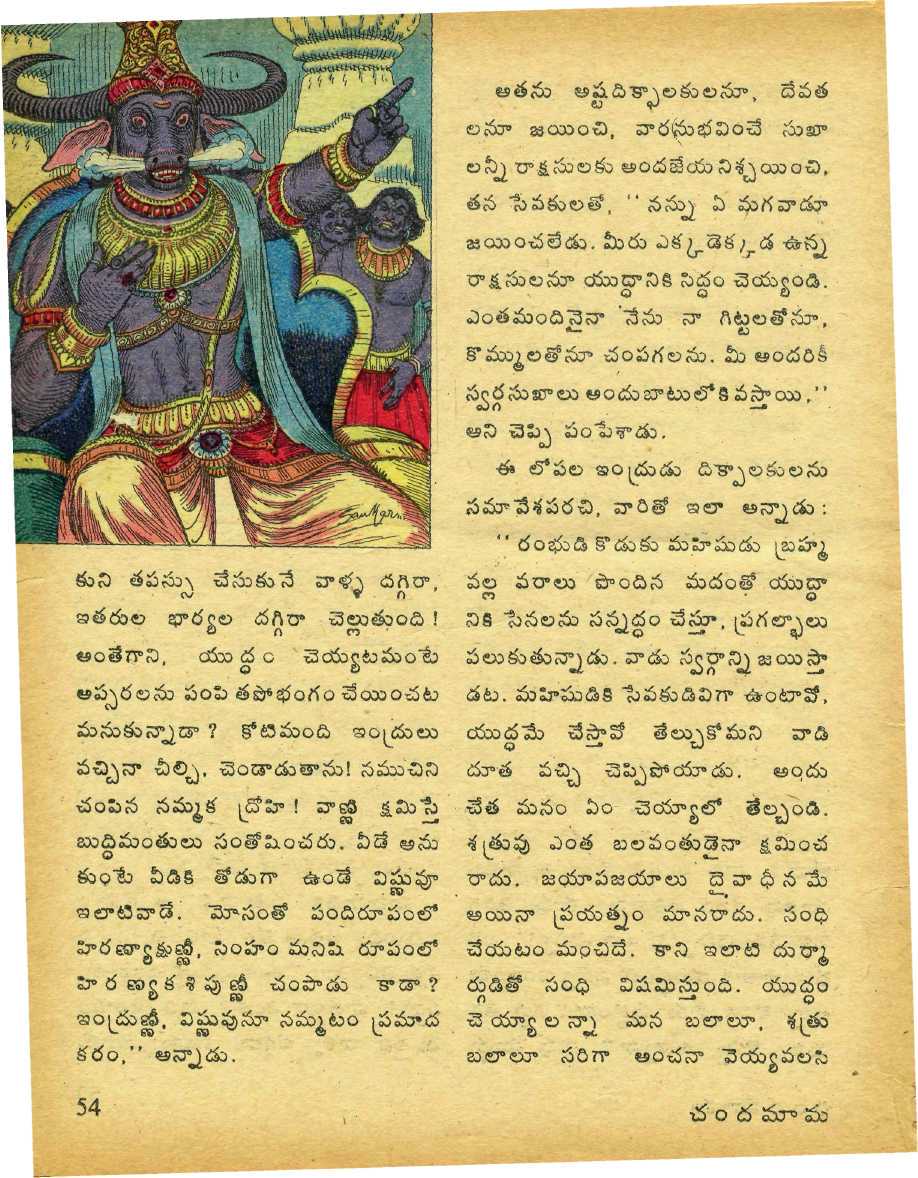 కుని తపస్సు చేసుకునే వాళ్ళ దగ్గిరా,
ఇతరుల భార్యల దగ్గిరా చెల్లుతుంది!
అంతేగాని, యుద్ధం చెయ్యటమంటే
అప్సరలను పంపి తపోభంగం చేయించట
మనుకున్నాడా? కోటిమంది ఇంద్రులు
వచ్చినా చీల్చి, చెండాడుతాను! నముచిని
చంపిన నమ్మక ద్రోహి! వాణ్ణి క్షమిస్తే
బుద్ధిమంతులు సంతోషించరు. వీడే అను
కుంటే వీడికి తోడుగా ఉండే విష్ణువూ
ఇలాటివాడే. మోసంతో పందిరూపంలో
హిరణ్యాక్షుణ్ణీ, సింహం మనిషి రూపంలో
హిరణ్యకశిపుణ్ణీ చంపాడు కాడా?
ఇంద్రుణ్ణీ, విష్ణువునూ నమ్మటం ప్రమాద
కరం,'' అన్నాడు.
అతను అష్టదిక్పాలకులనూ, దేవత
లనూ జయించి, వారనుభవించే సుఖా
లన్నీ రాక్షసులకు అందజేయ నిశ్చయించి,
తన సేవకులతో, ''నన్ను ఏ మగవాడూ
జయించలేడు. మీరు ఎక్కడెక్కడ ఉన్న
రాక్షసులనూ యుద్ధానికి సిద్ధం చెయ్యండి.
ఎంతమందినైనా నేను నా గిట్టలతోనూ,
కొమ్ములతోనూ చంపగలను. మీ అందరికీ
స్వర్గసుఖాలు అందుబాటులోకి వస్తాయి,''
అని చెప్పి పంపేశాడు.
ఈ లోపల ఇంద్రుడు దిక్పాలకులను
సమావేశపరచి, వారితో ఇలా అన్నాడు:
''రంభుడి కొడుకు మహిషుడు బ్రహ్మ
వల్ల వరాలు పొందిన మదంతో యుద్ధా
నికి సేనలను సన్నద్ధం చేస్తూ, ప్రగల్భాలు
పలుకుతున్నాడు. వాడు స్వర్గాన్ని జయిస్తా
డట. మహిషుడికి సేవకుడివిగా ఉంటావో,
యుద్ధమే చేస్తావో తేల్చుకోమని వాడి
దూత వచ్చి చెప్పిపోయాడు. అందు
చేత మనం ఏం చెయ్యాలో తేల్చండి.
శత్రువు ఎంత బలవంతుడైనా క్షమించ
రాదు. జయాపజయాలు దైవాధీనమే
అయినా ప్రయత్నం మానరాదు. సంధి
చేయటం మంచిదే. కాని ఇలాటి దుర్మా
ర్గుడితో సంధి విషమిస్తుంది. యుద్ధం
చెయ్యాలన్నా మన బలాలూ, శత్రు
బలాలూ సరిగా అంచనా వెయ్యవలసి
54
చందమామ